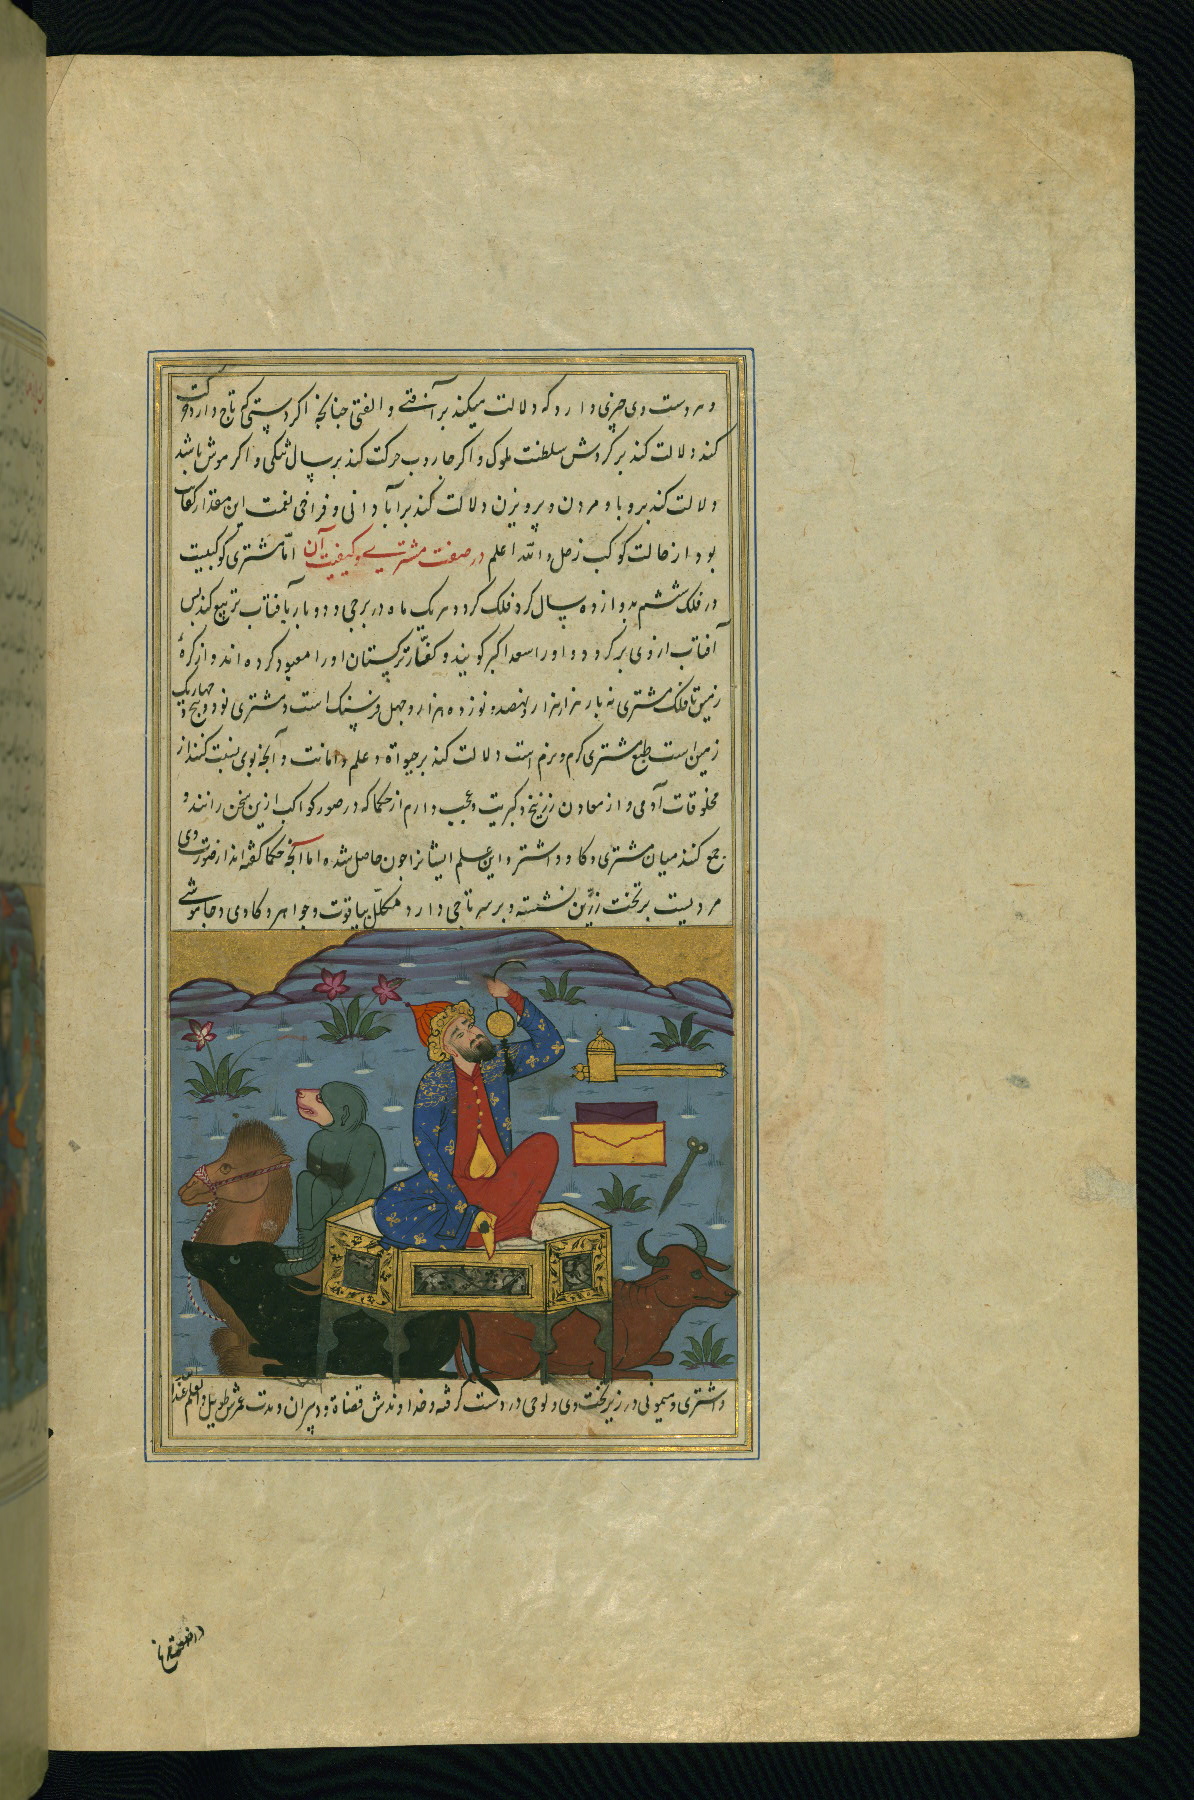 و هر دست وی چیزی دارد که دلالت میکند بر آفتی و الفتی چنانچه اکر دستی که تاج دارد حرکت
کند دلالت کند بر کردش سلطنت ملوک و اکر جاروب حرکت کند بر سال تنکی و اکر موش باشد
دلالت کند بر وبا و مردن و پرویزن دلالت کند بر آبادانی و فراخی نعمت این مقدار کفایت
بود از حالت کوکب زحل والله اعلم در صفت مشتری و کیفیت آن اما مشتری کوکبیست
در فلک ششم بدوازده سال کرد فلک کردد هر یک ماه در برجی و دو بار بآفتاب تربیع کند پس
آفتاب از وی برکردد و او را سعد اکبر کویند و کفار ترکستان او را معبود کرده اند و از کرهٔ
زمین تا فلک مشتری نه بار هزار هزار و نهصد و نوزده هزار و چهل فرسنک است و مشتری نود و پنج و چهار یک
زمین است طبع مشتری کرم و نرم است دلالت کند بر حیواة و علم و امانت و آنچه بوی نسبت کنند از
مخلوقات آدمی و از معادن زرنیخ و کبریت و عجب دارم از حکما که در صور کواکب ازین سخن رانند و
جمع کنند میان مشتری و کاو و اشتر و این علم ایشانرا چون حاصل شده اما آنچه حکما کفته اند از صورت وی
مردیست بر تخت زرین نشسته و بر سر تاجی دارد مکلل بیاقوت و جواهر و کاوی و جاموشی
و اشتری و میمونی در زیر تخت وی و لوحی در دست کرفته و خداوندش قضاة و دبیران و مدت عمرش طویل والعلم عندالله